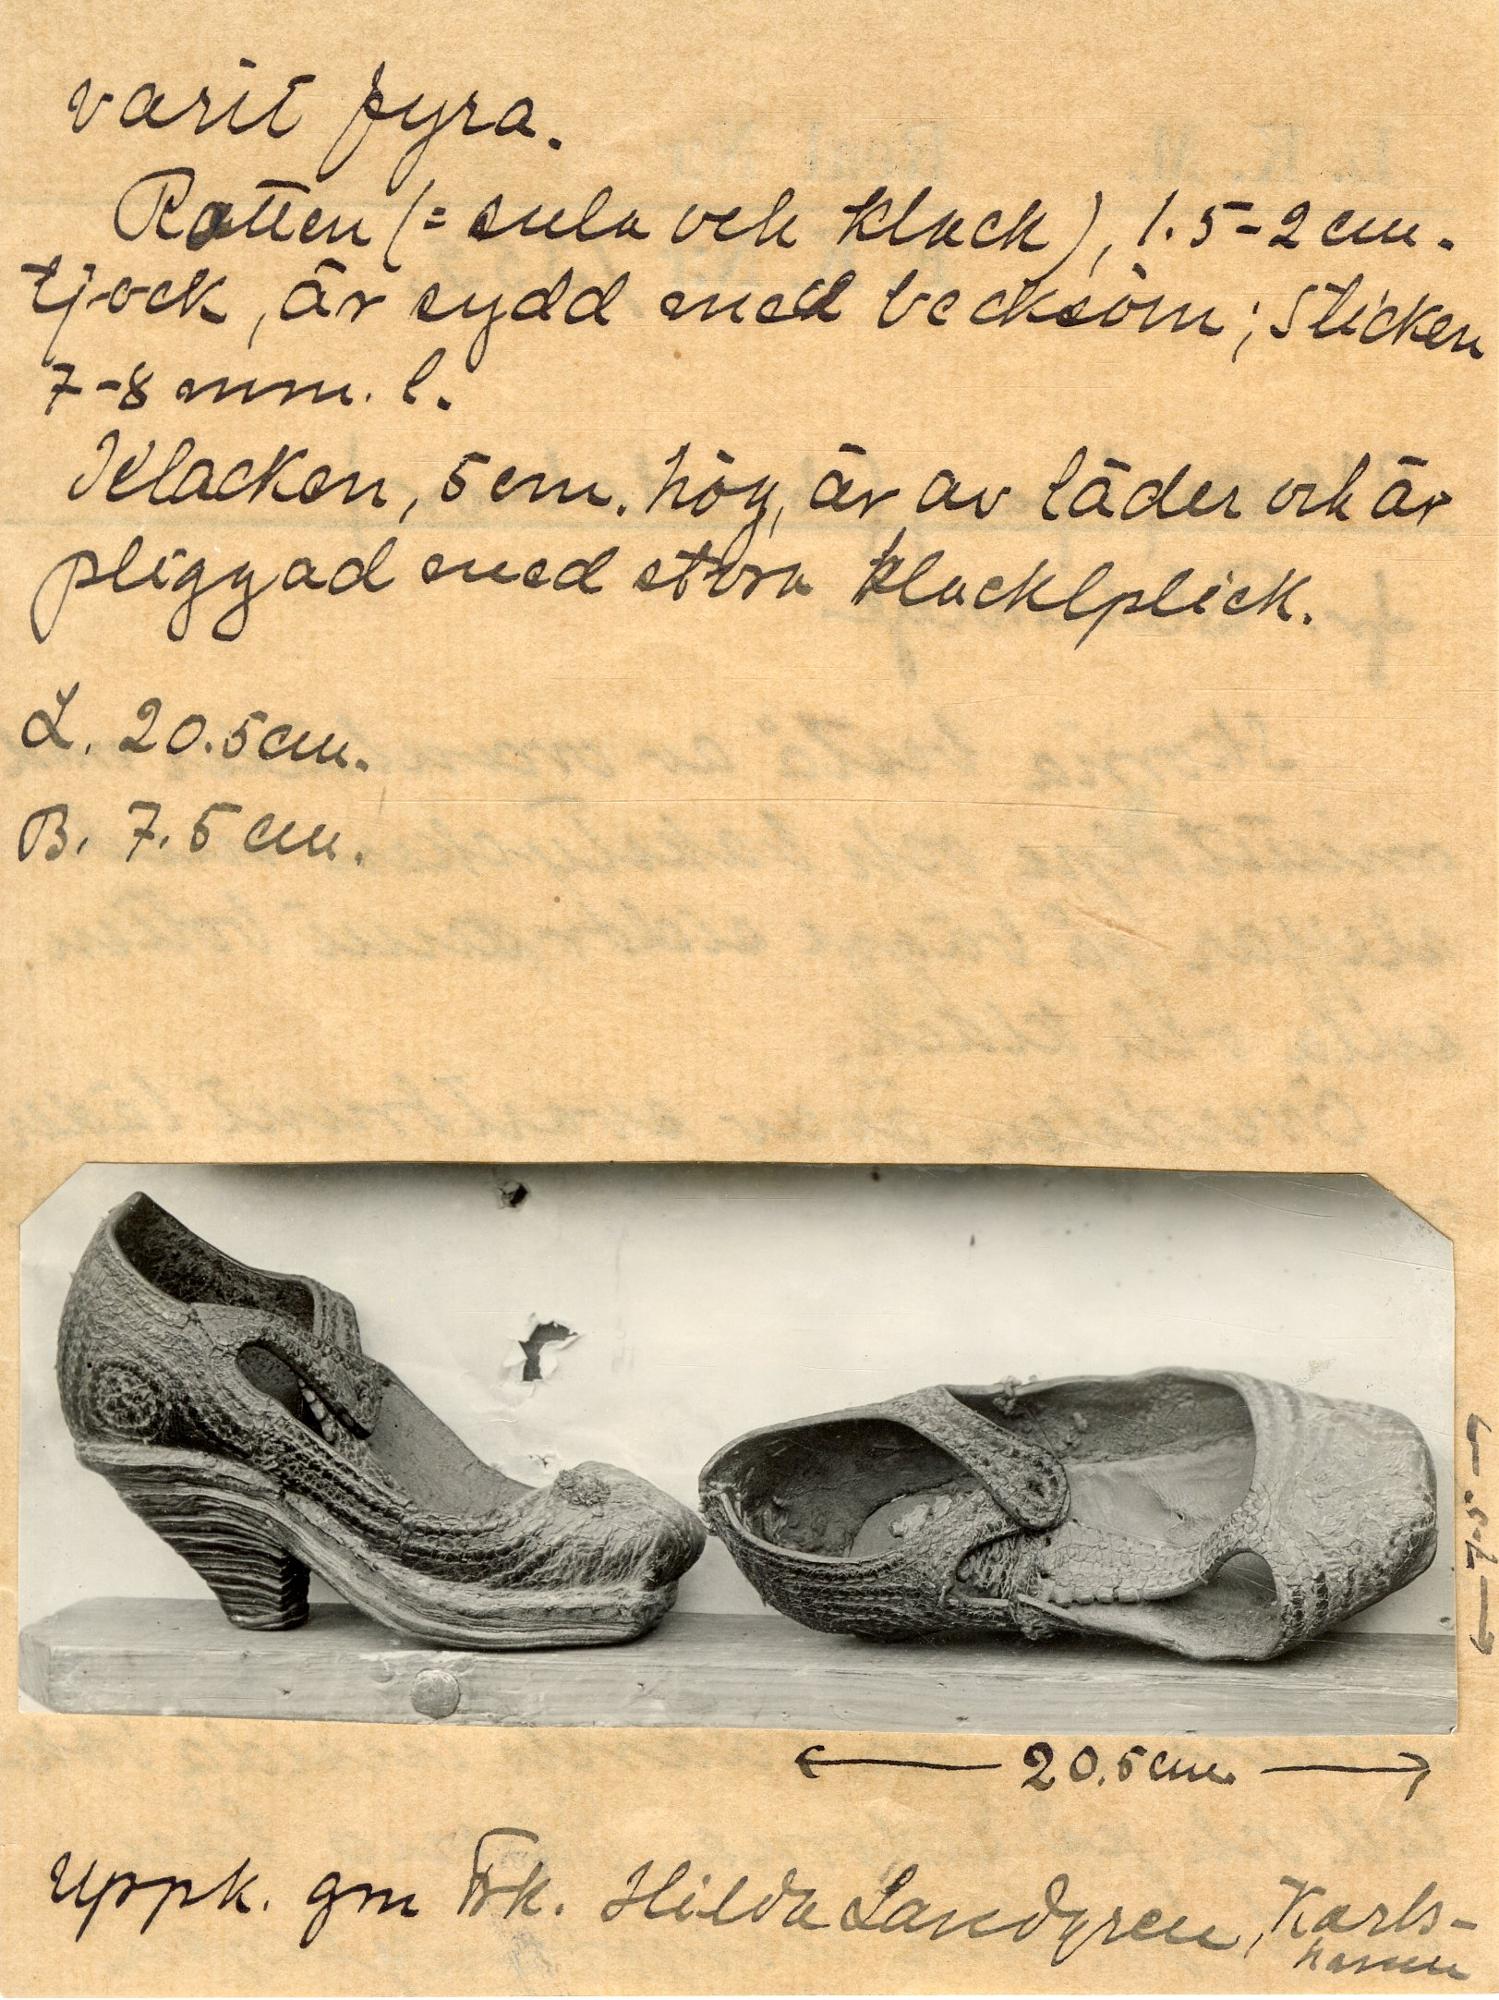 varit fyra.
Rotten (= sula och klack), 1.5-2 cm.
tjock, är sydd med becksöm; Sticken
7-8 mm. l.
Klacken, 5 cm. hög, är av läder och är
pliggad med stora klacklplick.
L. 20.5 cm.
B. 7.5 cm.
7.5
20.5 cm.
Uppk. gm Frk. Hilda Landgren, Karls-
hamn